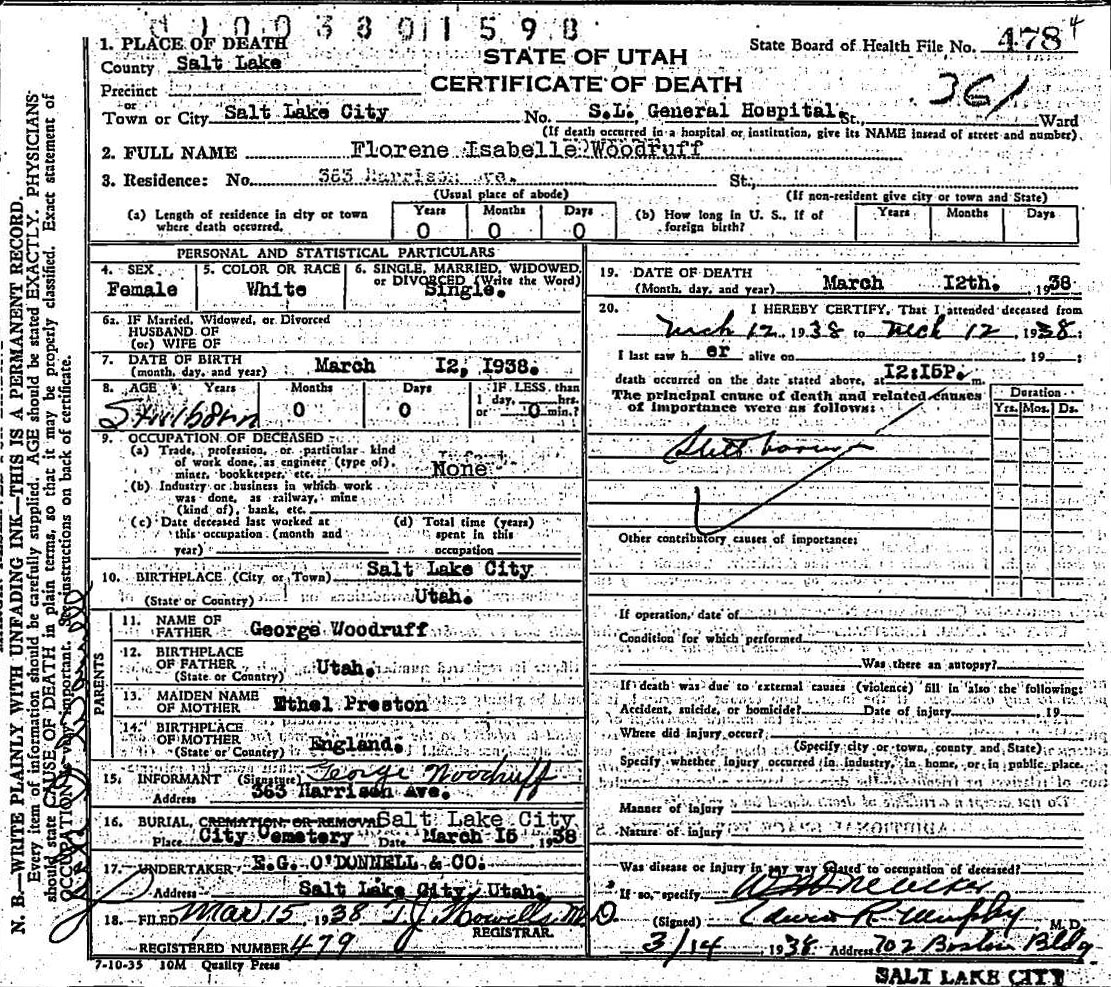 0 1 0 0 3 8 0 1 5 9 8
STATE OF UTAH
CERTIFICATE OF DEATH
State Board of Health File No. 478 4
361
1. PLACE OF DEATH
County Salt Lake
Precinct
or
Town or City Salt Lake City No. S.L. General Hospital. St., Ward
(If death occurred in a hospital or institution, give its NAME insead of street and number).
2. FULL NAME Florene Isabelle Woodruff
3. Residence: No. 363 Harrison Ave. St.,
(Usual place of abode) (If non-resident give city or town and State)
(a) Length of residence in city or town where death occurred. Years 0 Months 0 Days 0
(b) How long in U. S., If of foreign birth? Years Months Days
PERSONAL AND STATISTICAL PARTICULARS
4. SEX Female
5. COLOR OR RACE White
6. SINGLE, MARRIED, WIDOWED, or DIVORCED (Write the Word) Single.
6a. IF Married, Widowed, or Divorced
HUSBAND OF
(or) WIFE OF
7. DATE OF BIRTH
(month, day, and year) March I2, I938.
8. AGE Years Months Days IF LESS than
Stillborn 0 0 1 day, hrs.
or 0 min.?
9. OCCUPATION OF DECEASED
(a) Trade, profession, or particular kind
of work done, as engineer (type of),
miner, bookkeeper, etc. None
(b) Industry or business in which work
was done, as railway, mine
(kind of), bank, etc.
(c) Date deceased last worked at
this occupation (month and
year)
(d) Total time (years)
spent in this
occupation
10. BIRTHPLACE (City or Town) Salt Lake City
(State or Country) Utah.
PARENTS
11. NAME OF
FATHER George Woodruff
12. BIRTHPLACE
OF FATHER Utah.
(State or Country)
13. MAIDEN NAME
OF MOTHER Ethel Preston
14. BIRTHPLACE
OF MOTHER
(State or Country) England.
15. INFORMANT (Signature) George Woodruff
Address 363 Harrison Ave.
16. BURIAL, CREMATION, OR REMOVAL Salt Lake City
Place City Cemetery Date March I5 1938
17. UNDERTAKER E.G. O'DONNELL & CO.
Address Salt Lake City, Utah.
18. FILED Mar 15 1938 T.J. Howells M.D.
REGISTRAR.
REGISTERED NUMBER 479
7-10-35 10M Quality Press
19. DATE OF DEATH
(Month, day, and year) March I2th. 1938
20. I HEREBY CERTIFY, That I attended deceased from
Mch 12, 1938 to Mch 12, 1938:
I last saw h er alive on 19 :
death occurred on the date stated above, at I2:I5P. m.
The principal cause of death and related causes
of importance were as follows:
Duration
Yrs. Mos. Ds.
Other contributory causes of importance:
If operation, date of
Condition for which performed
Was there an autopsy?
If death was due to external causes (violence) fill in also the following:
Accident, suicide, or homicide? Date of injury 19
Where did injury occur?
(Specify city or town, county and State)
Specify whether injury occurred in industry, in home, or in public place.
Manner of injury
Nature of injury
Was disease or injury in any way related to occupation of deceased?
If so, specify
(Signed) Edwin R. Murphy M. D.
3/14 1938 Address 702 Boston Bldg
SALT LAKE CITY
N. B.—WRITE PLAINLY WITH UNFADING INK—THIS IS A PERMANENT RECORD.
Every item of information should be carefully supplied. AGE should be stated EXACTLY. PHYSICIANS
should state CAUSE OF DEATH in plain terms, so that it may be properly classified. Exact statement of
OCCUPATION is very important. See instructions on back of certificate.